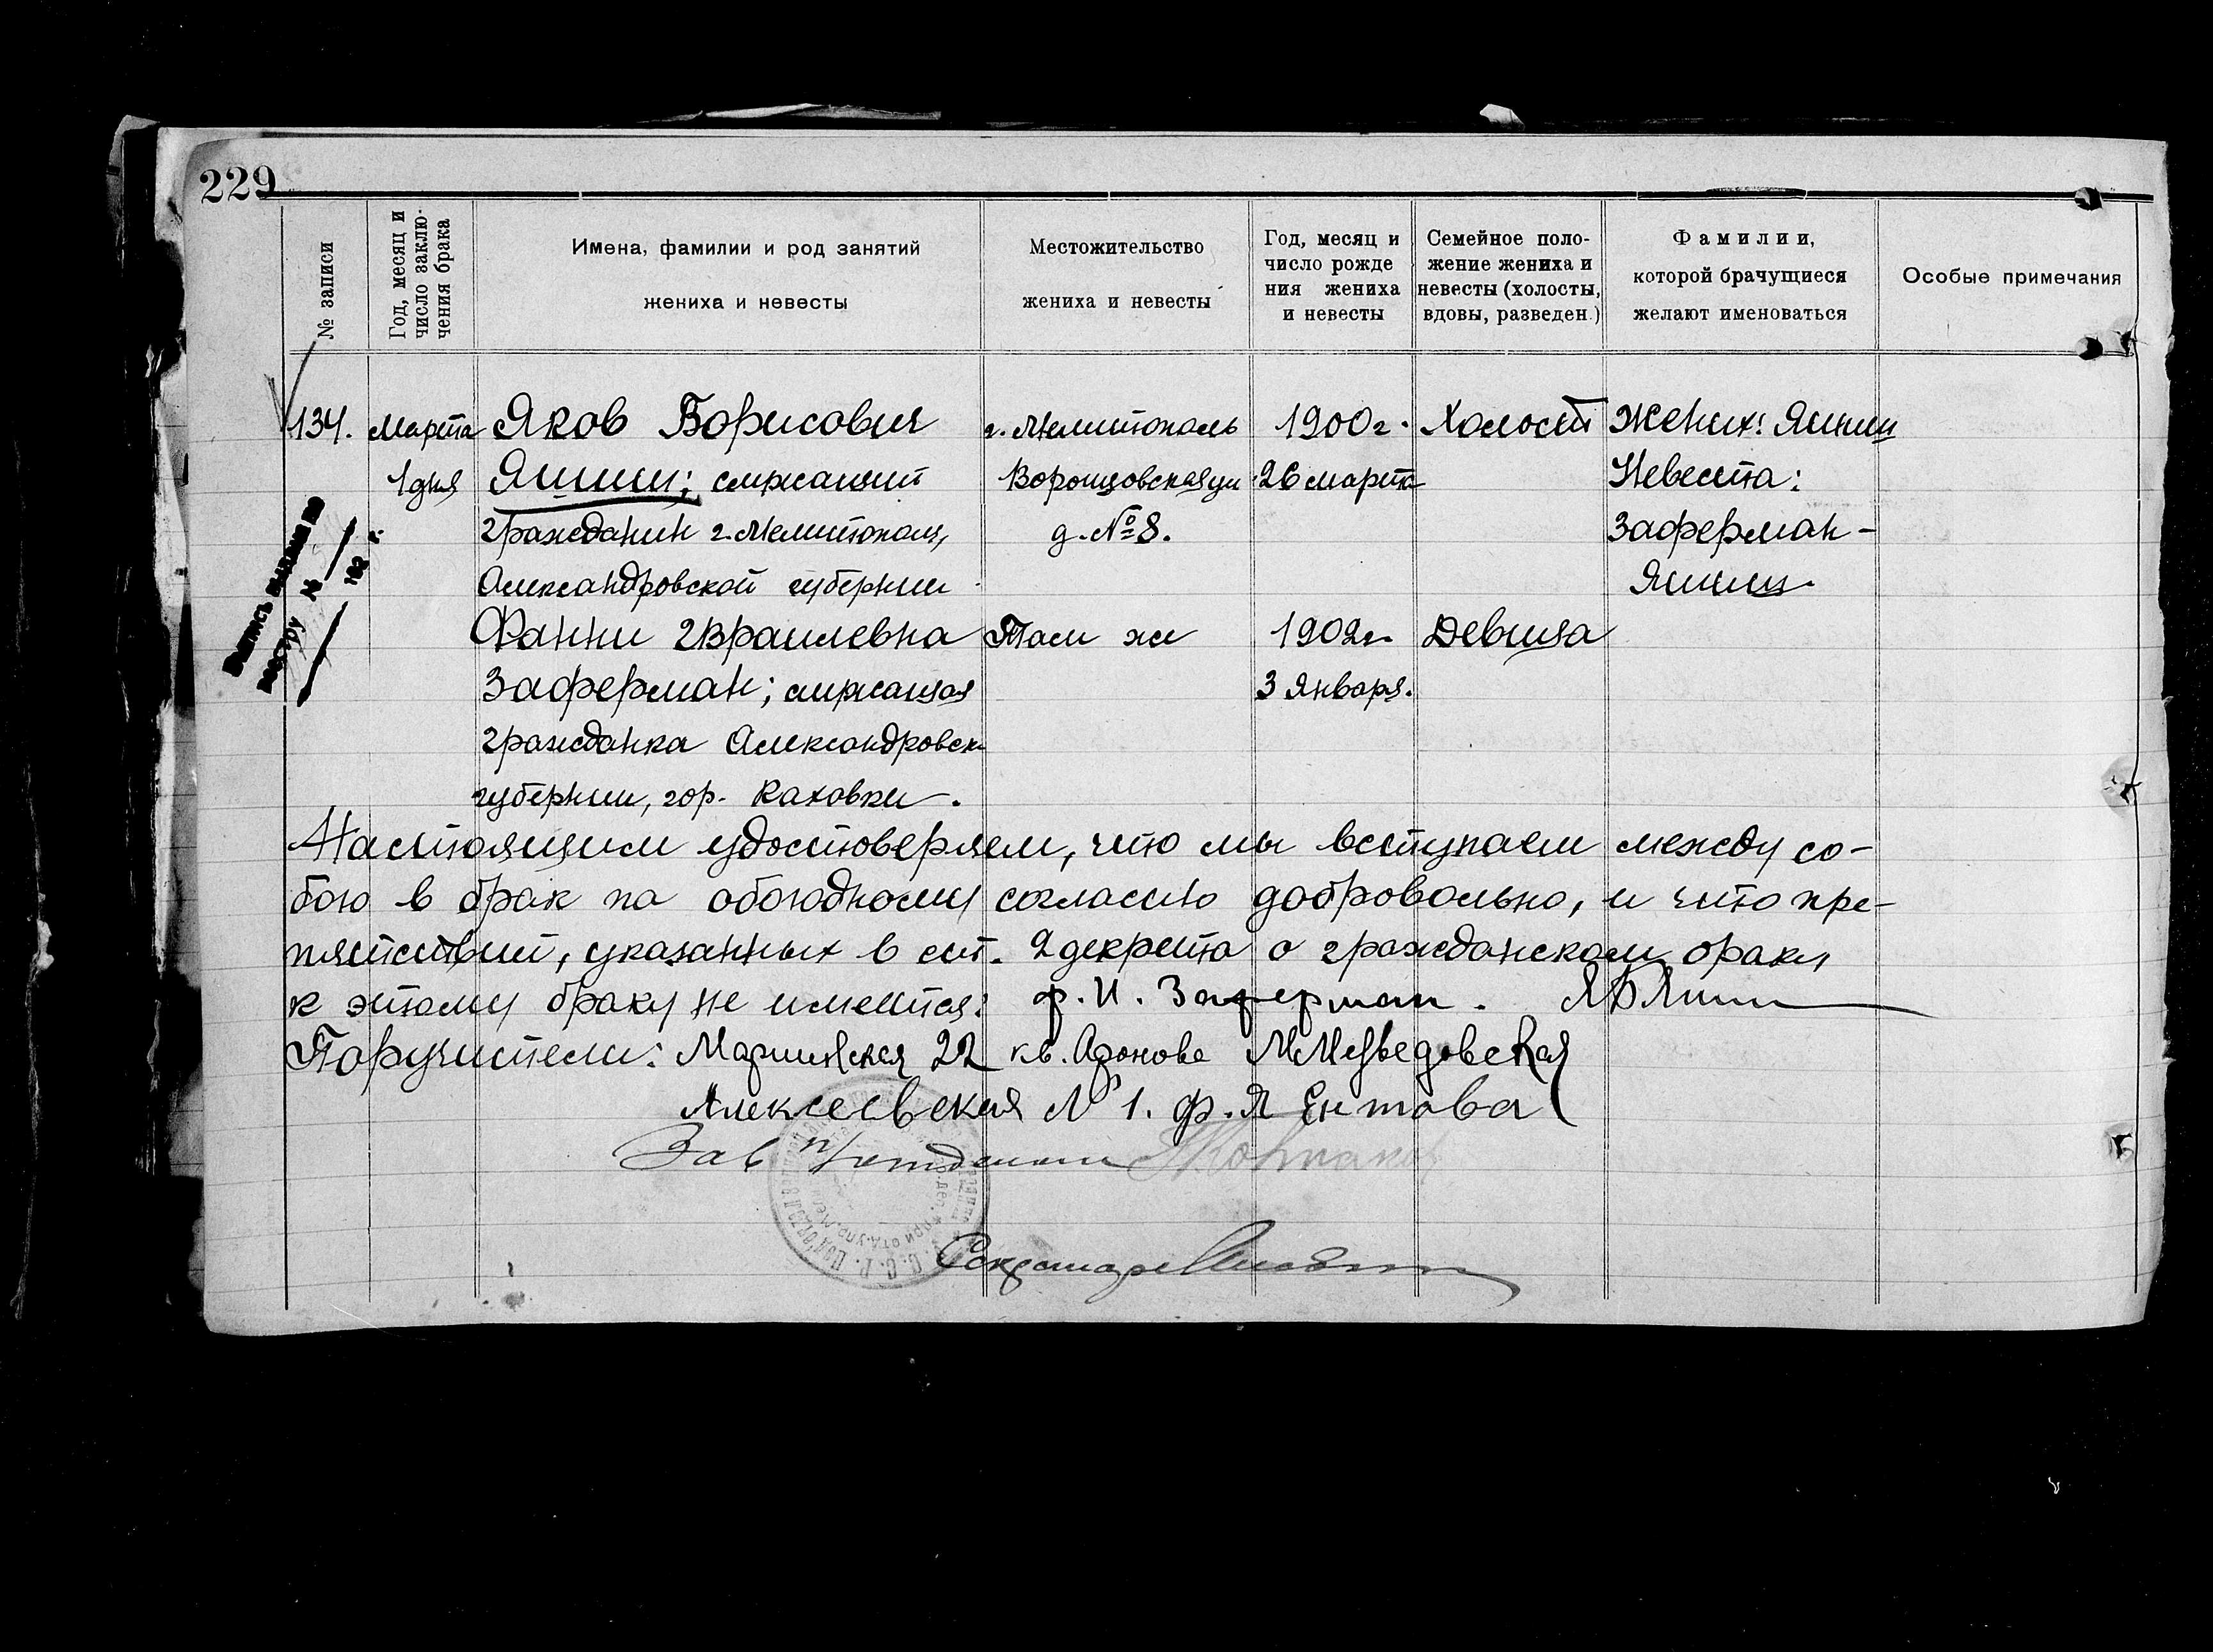 229
№ записи
Год, месяц и число заклю-чения брака
Имена, фамилии и род занятий
жениха и невесты
Местожительство
жениха и невесты
Год, месяц и
число рожде
ния жениха
и невесты
Семейное поло-
жение жениха и
невесты (холосты,
вдовы, разведен.)
Фамилии,
которой брачущиеся
желают именоваться
Особые примечания
134. Марта Яков Борисович г. Мелитополь 1900 г. Холост Жених: Яшиш
1 дня Яшиш; служащий Воронцовская ул 26 марта Невеста:
гражданин г. Мелитополя, д. № 8. Заферман-
Александровской губернии Яшиш.
Фанни Израилевна Там же 1902 г. Девица
Заферман; служащая 3 января.
гражданка Александровск
губернии, гор. Каховки.
Настоящим удостоверяем, что мы вступаем между со-
бою в брак по обоюдному согласию добровольно, и что пре-
пятствий, указанных в ст. 2 декрета о гражданском браке
к этому браку не имеется: Ф. И. Заферман.
Поручители: Мариинская 22 кв. Аронова М Медведовская
Алексеевская № 1. Ф. Я Ентова
Зав п/отделом
Секретарь